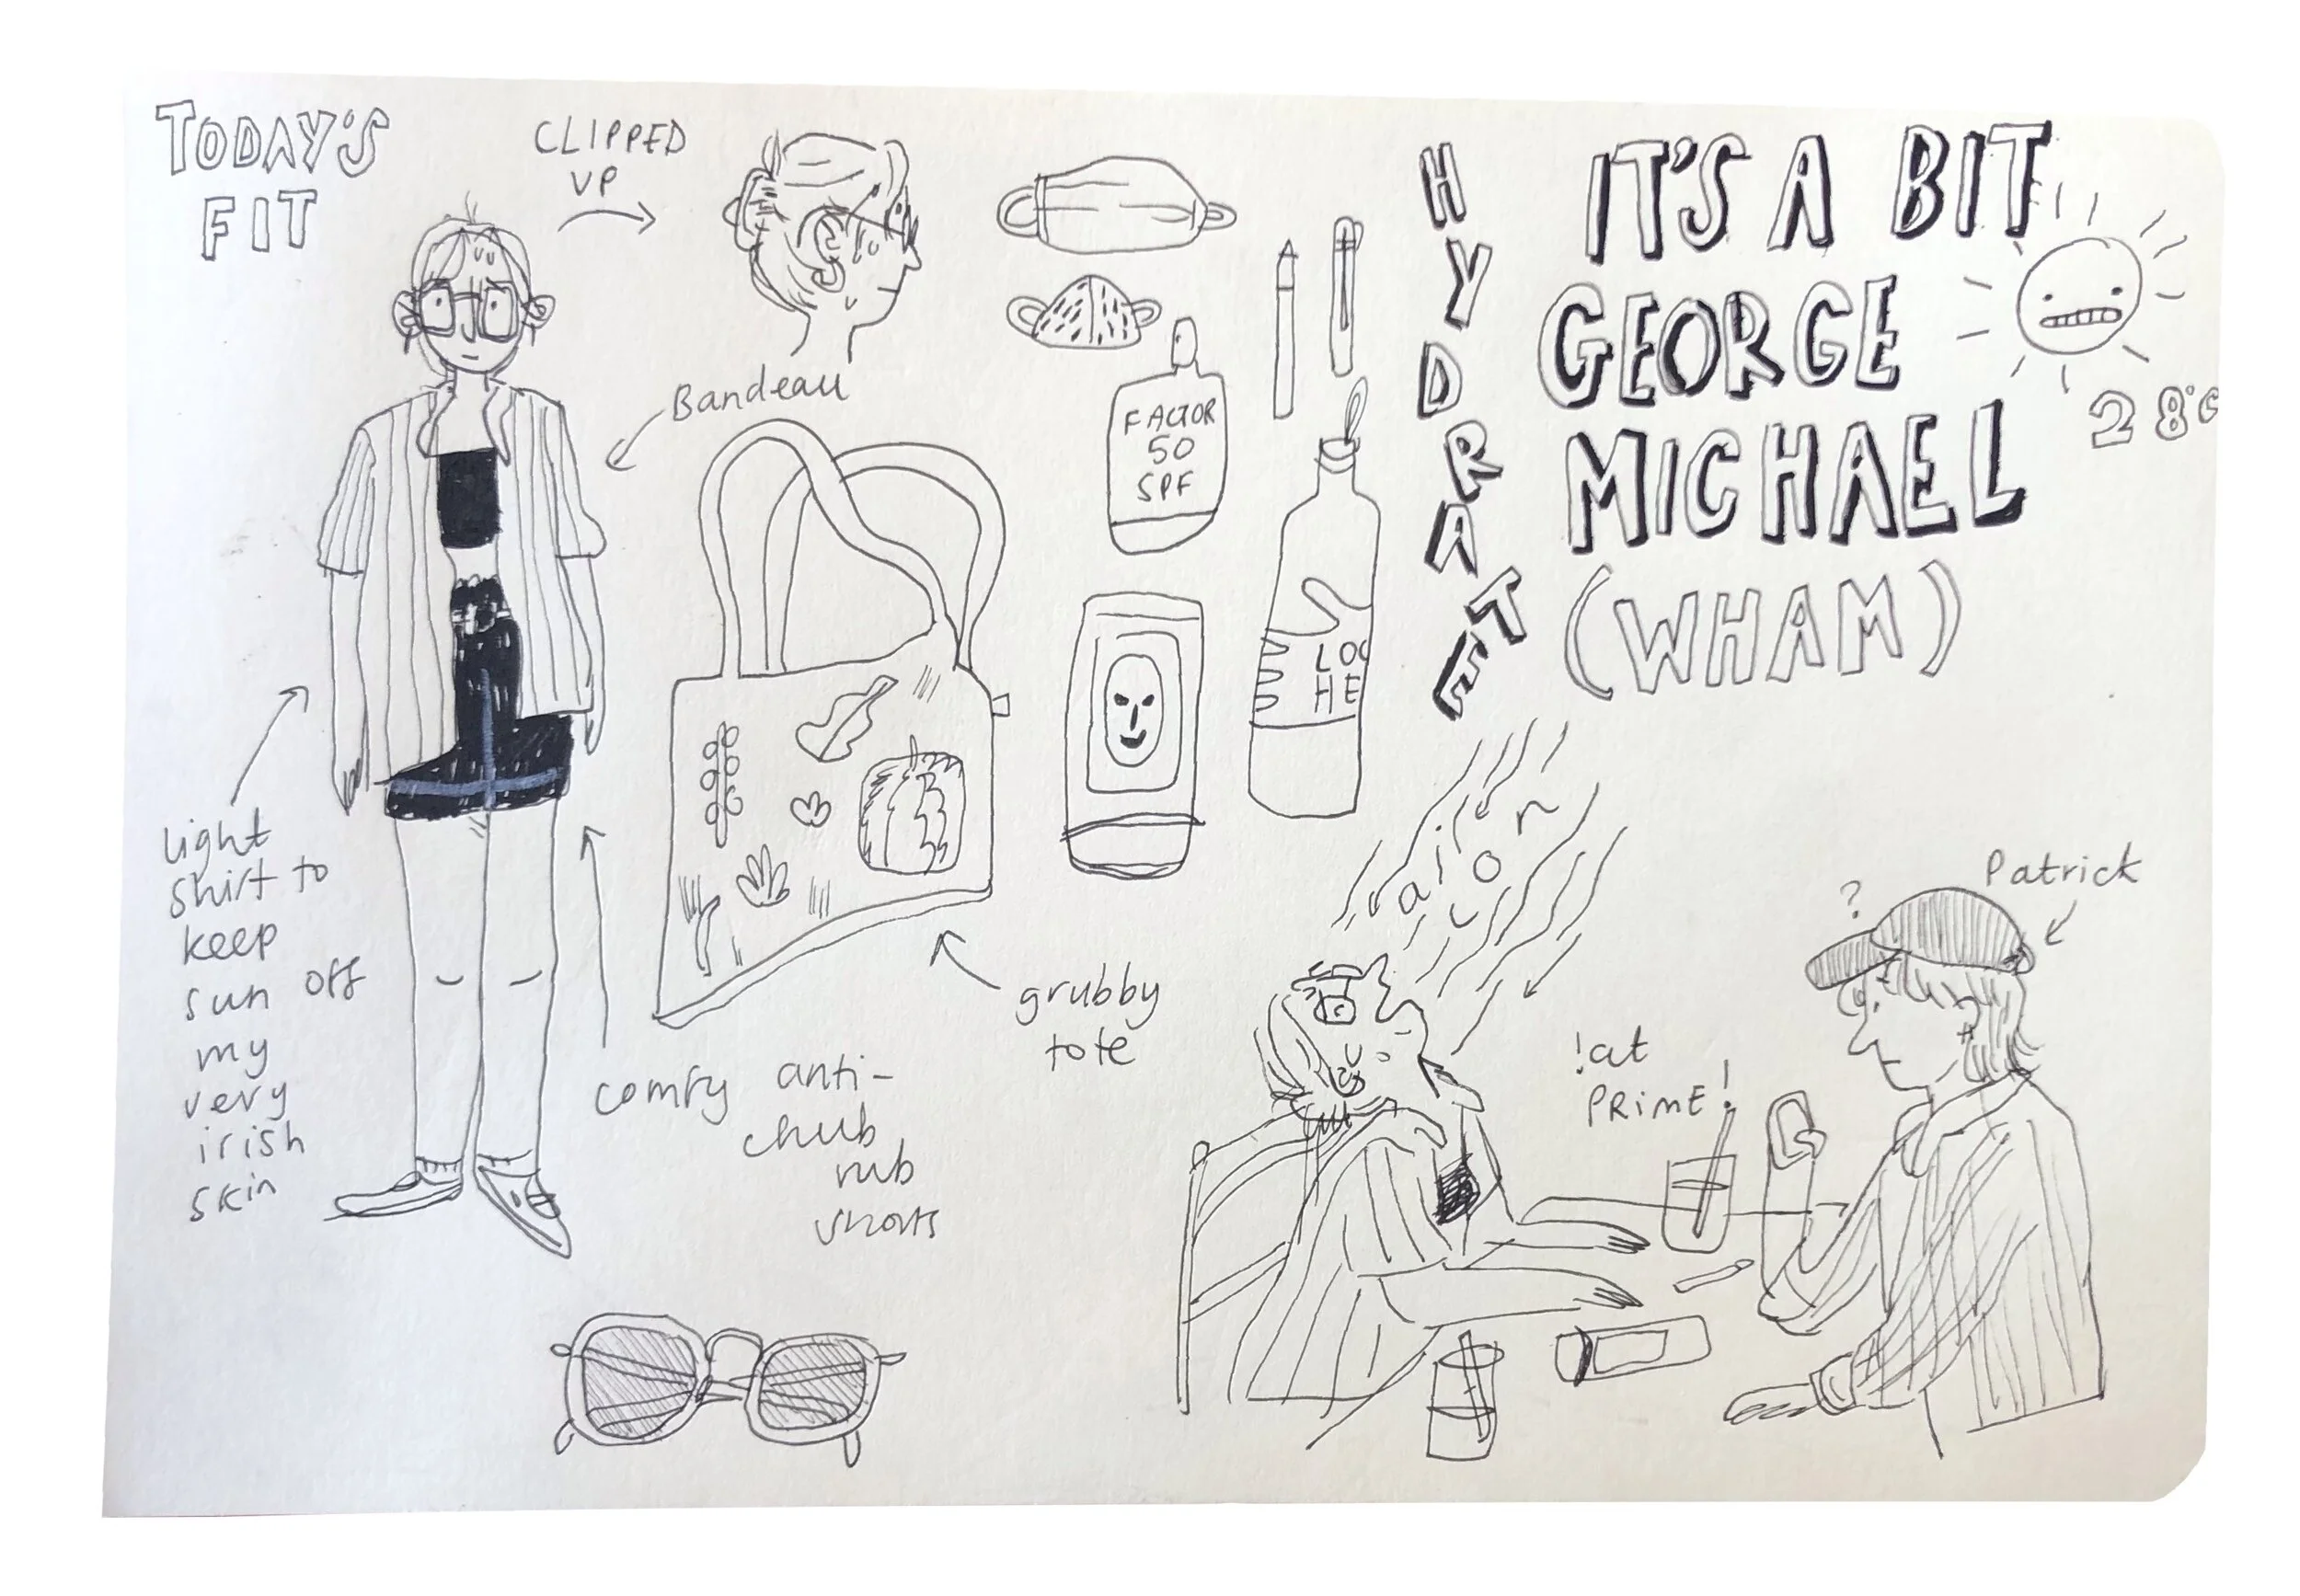 TODAY'S
FIT
CLIPPED
UP
Bandeau
light
shirt to
keep
sun off
my
very
irish
skin
comfy anti-
chub
rub
shorts
grubby
tote
FACTOR
50
SPF
LOC
HE
HYDRATE
IT'S A BIT
GEORGE
MICHAEL
(WHAM)
28°C
air
con
?
Patrick
!at
PRIME!